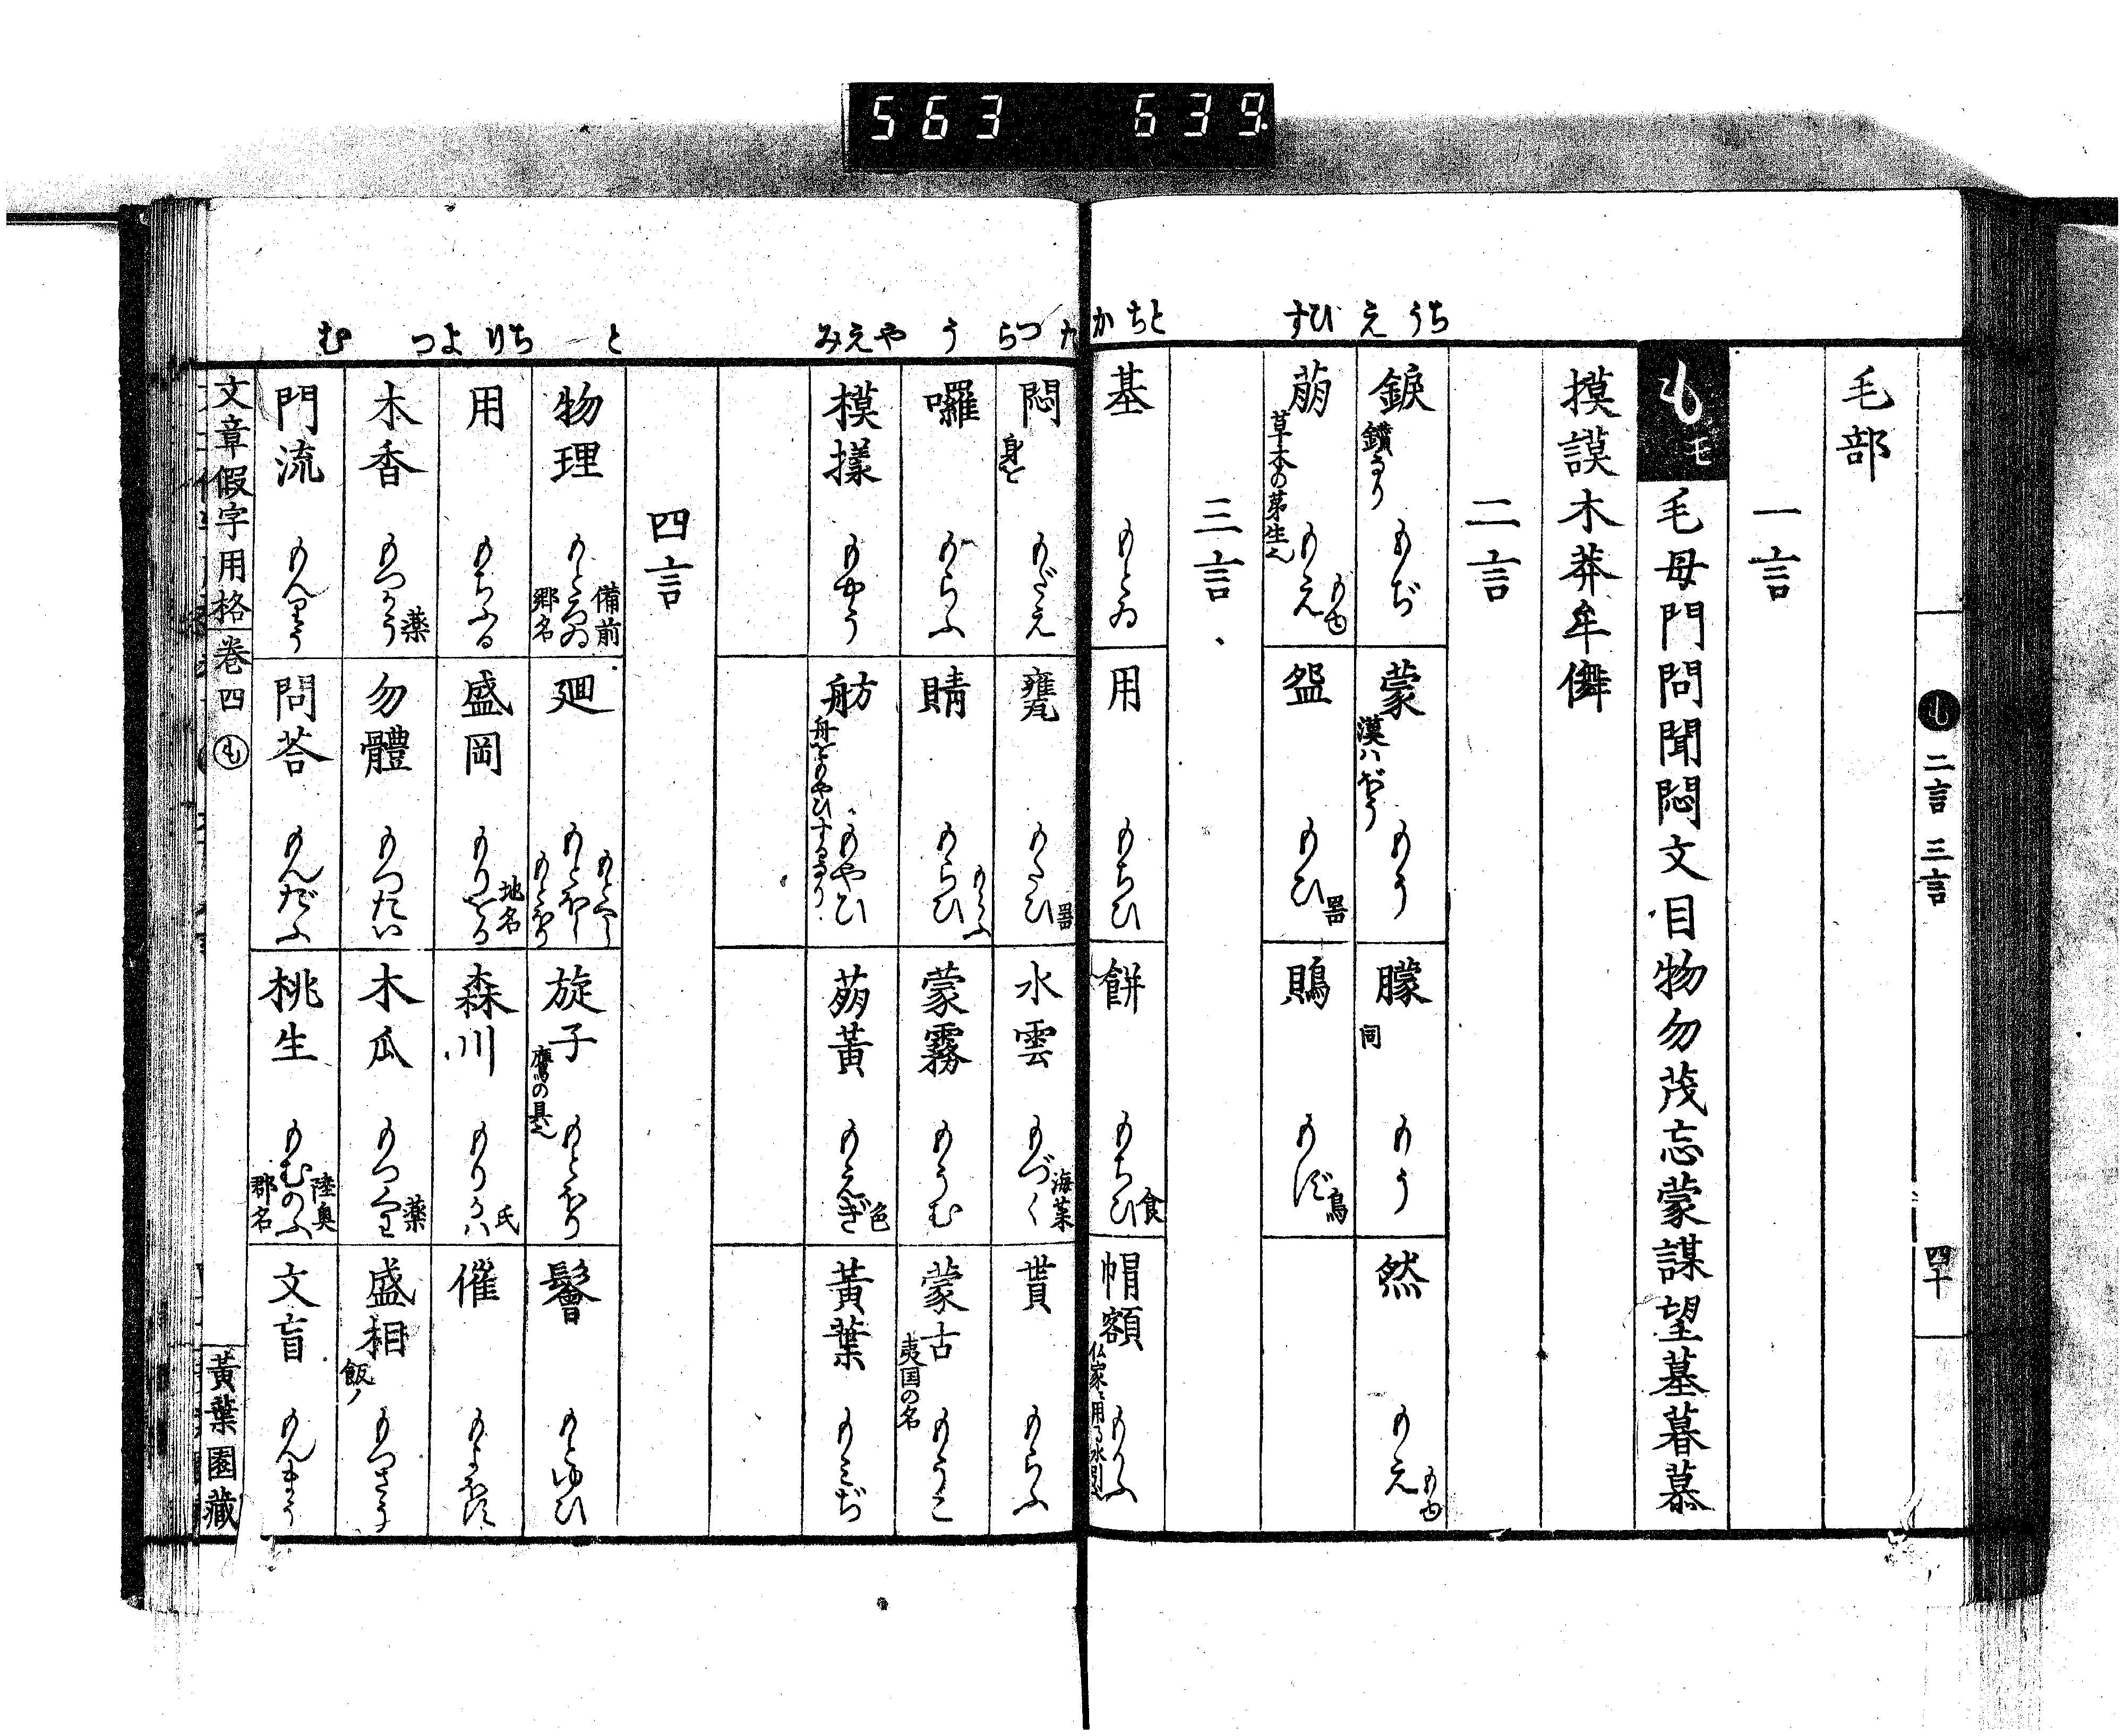 563 639
ちうえひすとちか
毛部
一言
も毛
毛母門問聞悶文目物勿茂忘蒙謀望墓暮慕
摸謨木莽牟儛
二言
蒙 もう
朦 同 もう
然 もえ
萌 もえ
盌 もひ 器
三言
基 もとゐ
用 もちひ
餅 もちひ 食
帽額 もかふ
も 二言 三言
四十
たつらうやえみとちりよつむ
悶 身を もだえ
甕 もたひ 器
水雲 もづく 海菜
貰 もらふ
囉 もらふ
晴 もらひ
蒙霧 もうむ
蒙古 夷国の名 もうこ
模様 もやう
舫 もやひ
萠黄 もえぎ 色
黄葉 もみぢ
四言
物理 もとろゐ 備前郷名
廻 もとほし
旋子 もとほり
鬠 もとゆひ
用 もちふる
盛岡 もりをか 地名
森川 もりかハ 氏
催 もよほす
木香 もつかう 薬
勿體 もつたい
木瓜 もつくわ 薬
盛相 飯ノ もつさう
門流 もんりう
問荅 もんだふ
桃生 もむのふ 陸奥郡名
文盲 もんまう
文章假字用格 巻四 も
黄葉園藏